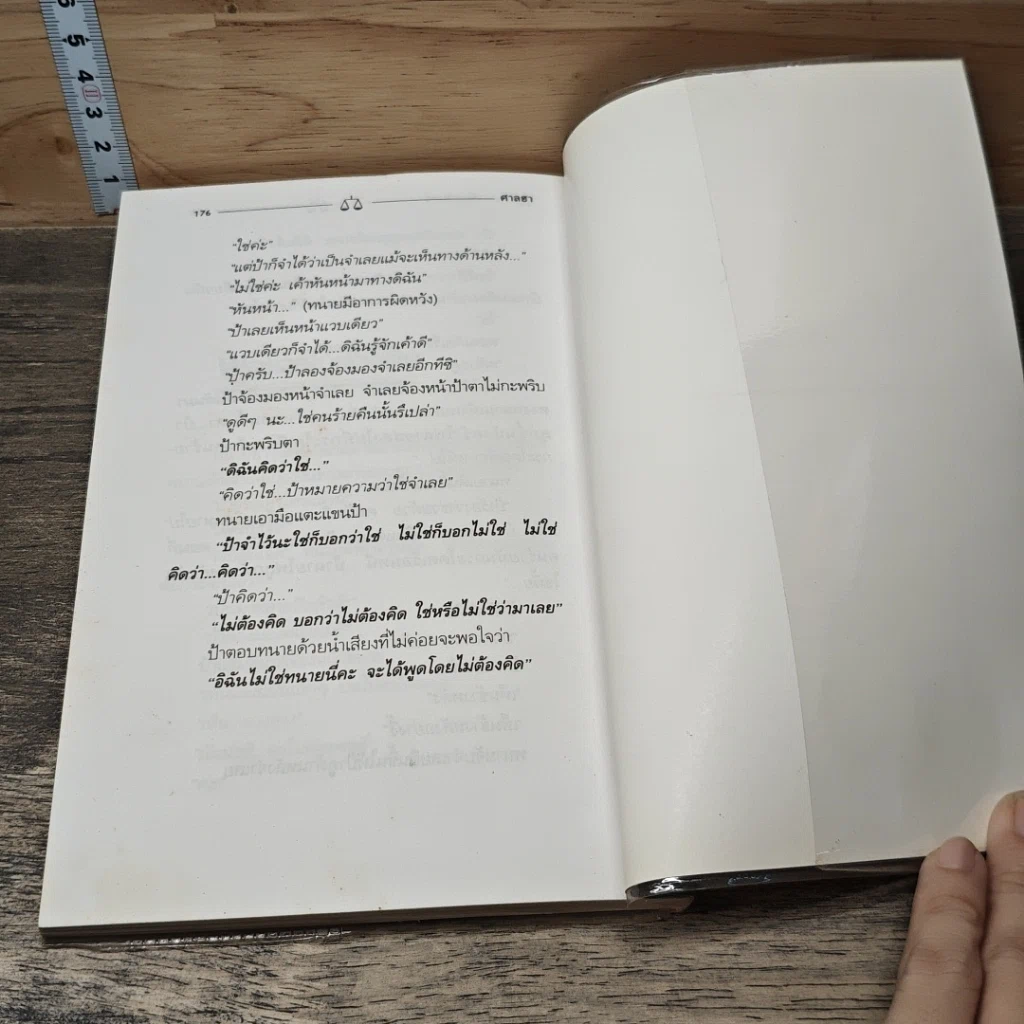 6 5 4 3 2 1
176 ศาลฮา
"ใช่ค่ะ"
"แต่ป้าก็จำได้ว่าเป็นจำเลยแม้จะเห็นทางด้านหลัง..."
"ไม่ใช่ค่ะ เค้าหันหน้ามาทางดิฉัน"
"หันหน้า..." (ทนายมีอาการผิดหวัง)
"ป้าเลยเห็นหน้าแวบเดียว"
"แวบเดียวก็จำได้...ดิฉันรู้จักเค้าดี"
"ป้าครับ...ป้าลองจ้องมองจำเลยอีกทีซิ"
ป้าจ้องมองหน้าจำเลย จำเลยจ้องหน้าป้าตาไม่กะพริบ
"ดูดีๆ นะ...ใช่คนร้ายคืนนั้นรึเปล่า"
ป้ากะพริบตา
"ดิฉันคิดว่าใช่..."
"คิดว่าใช่...ป้าหมายความว่าใช่จำเลย"
ทนายเอามือแตะแขนป้า
"ป้าจำไว้นะใช่ก็บอกว่าใช่ ไม่ใช่ก็บอกไม่ใช่ ไม่ใช่
คิดว่า...คิดว่า..."
"ป้าคิดว่า..."
"ไม่ต้องคิด บอกว่าไม่ต้องคิด ใช่หรือไม่ใช่ว่ามาเลย"
ป้าตอบทนายด้วยน้ำเสียงที่ไม่ค่อยจะพอใจว่า
"อิฉันไม่ใช่ทนายนี่คะ จะได้พูดโดยไม่ต้องคิด"